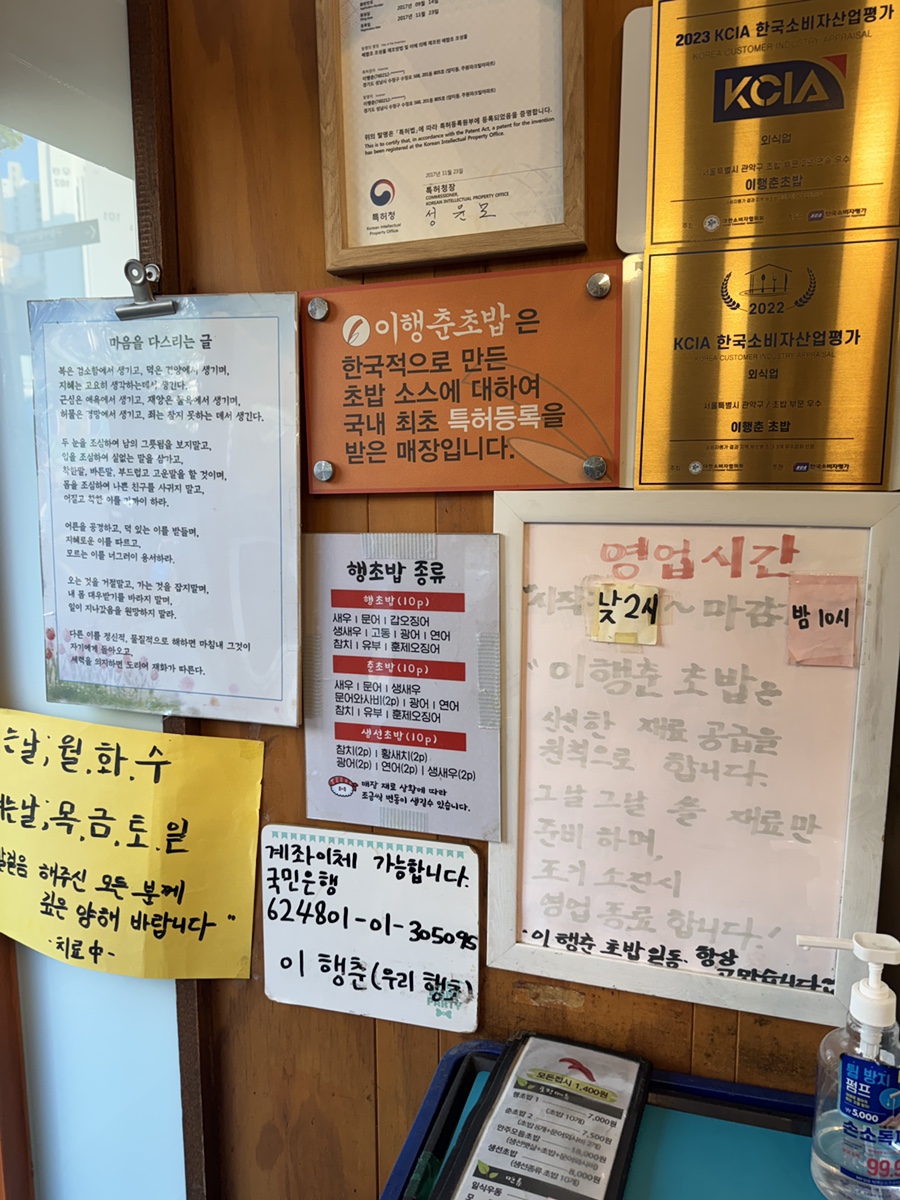 2017년 11월 23일
위의 발명은 「특허법」에 따라 특허등록원부에 등록되었음을 증명합니다.
This is to certify that, in accordance with the Patent Act, a patent for the invention
has been registered at the Korean Intellectual Property Office.
2017년 11월 23일
특허청
Korean Intellectual
Property Office
특허청장
COMMISSIONER,
KOREAN INTELLECTUAL PROPERTY OFFICE
성윤모
2023 KCIA 한국소비자산업평가
KOREA CUSTOMER INDUSTRY APPRAISAL
KCIA
외식업
이행춘초밥
2022
KCIA 한국소비자산업평가
KOREA CUSTOMER INDUSTRY APPRAISAL
외식업
서울특별시 관악구 / 초밥 부문 우수
이행춘 초밥
이행춘초밥은
한국적으로 만든
초밥 소스에 대하여
국내 최초 특허등록을
받은 매장입니다.
마음을 다스리는 글
복은 검소함에서 생기고, 덕은 겸양에서 생기며,
지혜는 고요히 생각하는데서 생긴다.
근심은 애욕에서 생기고, 재앙은 물욕에서 생기며,
허물은 경망에서 생기고, 죄는 참지 못하는 데서 생긴다.
두 눈을 조심하여 남의 그릇됨을 보지말고,
입을 조심하여 실없는 말을 삼가고,
착한말, 바른말, 부드럽고 고운말을 할 것이며,
몸을 조심하여 나쁜 친구를 사귀지 말고,
어질고 착한 이를 가까이 하라.
어른을 공경하고, 덕 있는 이를 받들며,
지혜로운 이를 따르고,
모르는 이를 너그러이 용서하라.
오는 것을 거절말고, 가는 것을 잡지말며,
내 몸 대우받기를 바라지 말며,
일이 지나갔음을 원망하지 말라.
다른 이를 정신적, 물질적으로 해하면 마침내 그것이
자기에게 돌아오고,
세력을 의지하면 도리어 재화가 따른다.
행초밥 종류
행초밥(10p)
새우 l 문어 l 갑오징어
생새우 l 고동 l 광어 l 연어
참치 l 유부 l 훈제오징어
춘초밥(10p)
새우 l 문어 l 생새우
문어와사비(2p) l 광어 l 연어
참치 l 유부 l 훈제오징어
생선초밥(10p)
참치(2p) l 황새치(2p)
광어(2p) l 연어(2p) l 생새우(2p)
매장 재료 상황에 따라
조금씩 변동이 생길수 있습니다.
영업시간
시작 낮 2시 ~ 마감 밤 10시
"이행춘 초밥은
신선한 재료 공급을
원칙으로 합니다.
그날그날 쓸 재료만
준비 하며,
조기 소진시
영업 종료 합니다!
이행춘 초밥 일동 항상
고맙습니다
는날; 월.화.수
는날; 목.금.토.일
해주신 모든 분께
깊은 양해 바랍니다"
-치료中-
계좌이체 가능합니다.
국민은행
624801-01-305095
이행춘(우리 행초)
PARTY
모든접시 1,400원
행초밥 1 (초밥 10개) 7,000원
춘초밥 2 7,500원
안주모듬초밥 18,000원
생선초밥 8,000원
(생선종류 초밥 10개)
일식우동
펌프
₩5,000
손소독
99.9